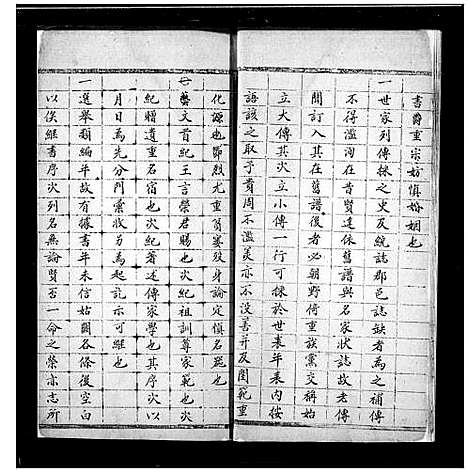 書爵重宗妨慎婚姻也
一世家列傳採之史及統誌郡邑誌缺者為之補傳
不得濫淘在昔賢達係舊譜與名家狀誌故老傳
聞訂入其在舊譜後者必朝野倚重族黨交稱始
立大傳其次立小傳一行可採於世表年表內按
語該之取予貴周不濫美亦不沒善并及閨範重
化源也鄭烈尤重貧嫠歿身論定慎名器也
一藝文首紀王言榮君賜也次紀祖訓尊家範也次
紀贈遺重名宿也次紀著述傳家學也其序次以
月日為先分門彙狀另為起訖示可繼也
一選舉類編年故有據書年未信姑闕各條後空白
以俟繼書序次列名無論賢否一命之榮亦志所